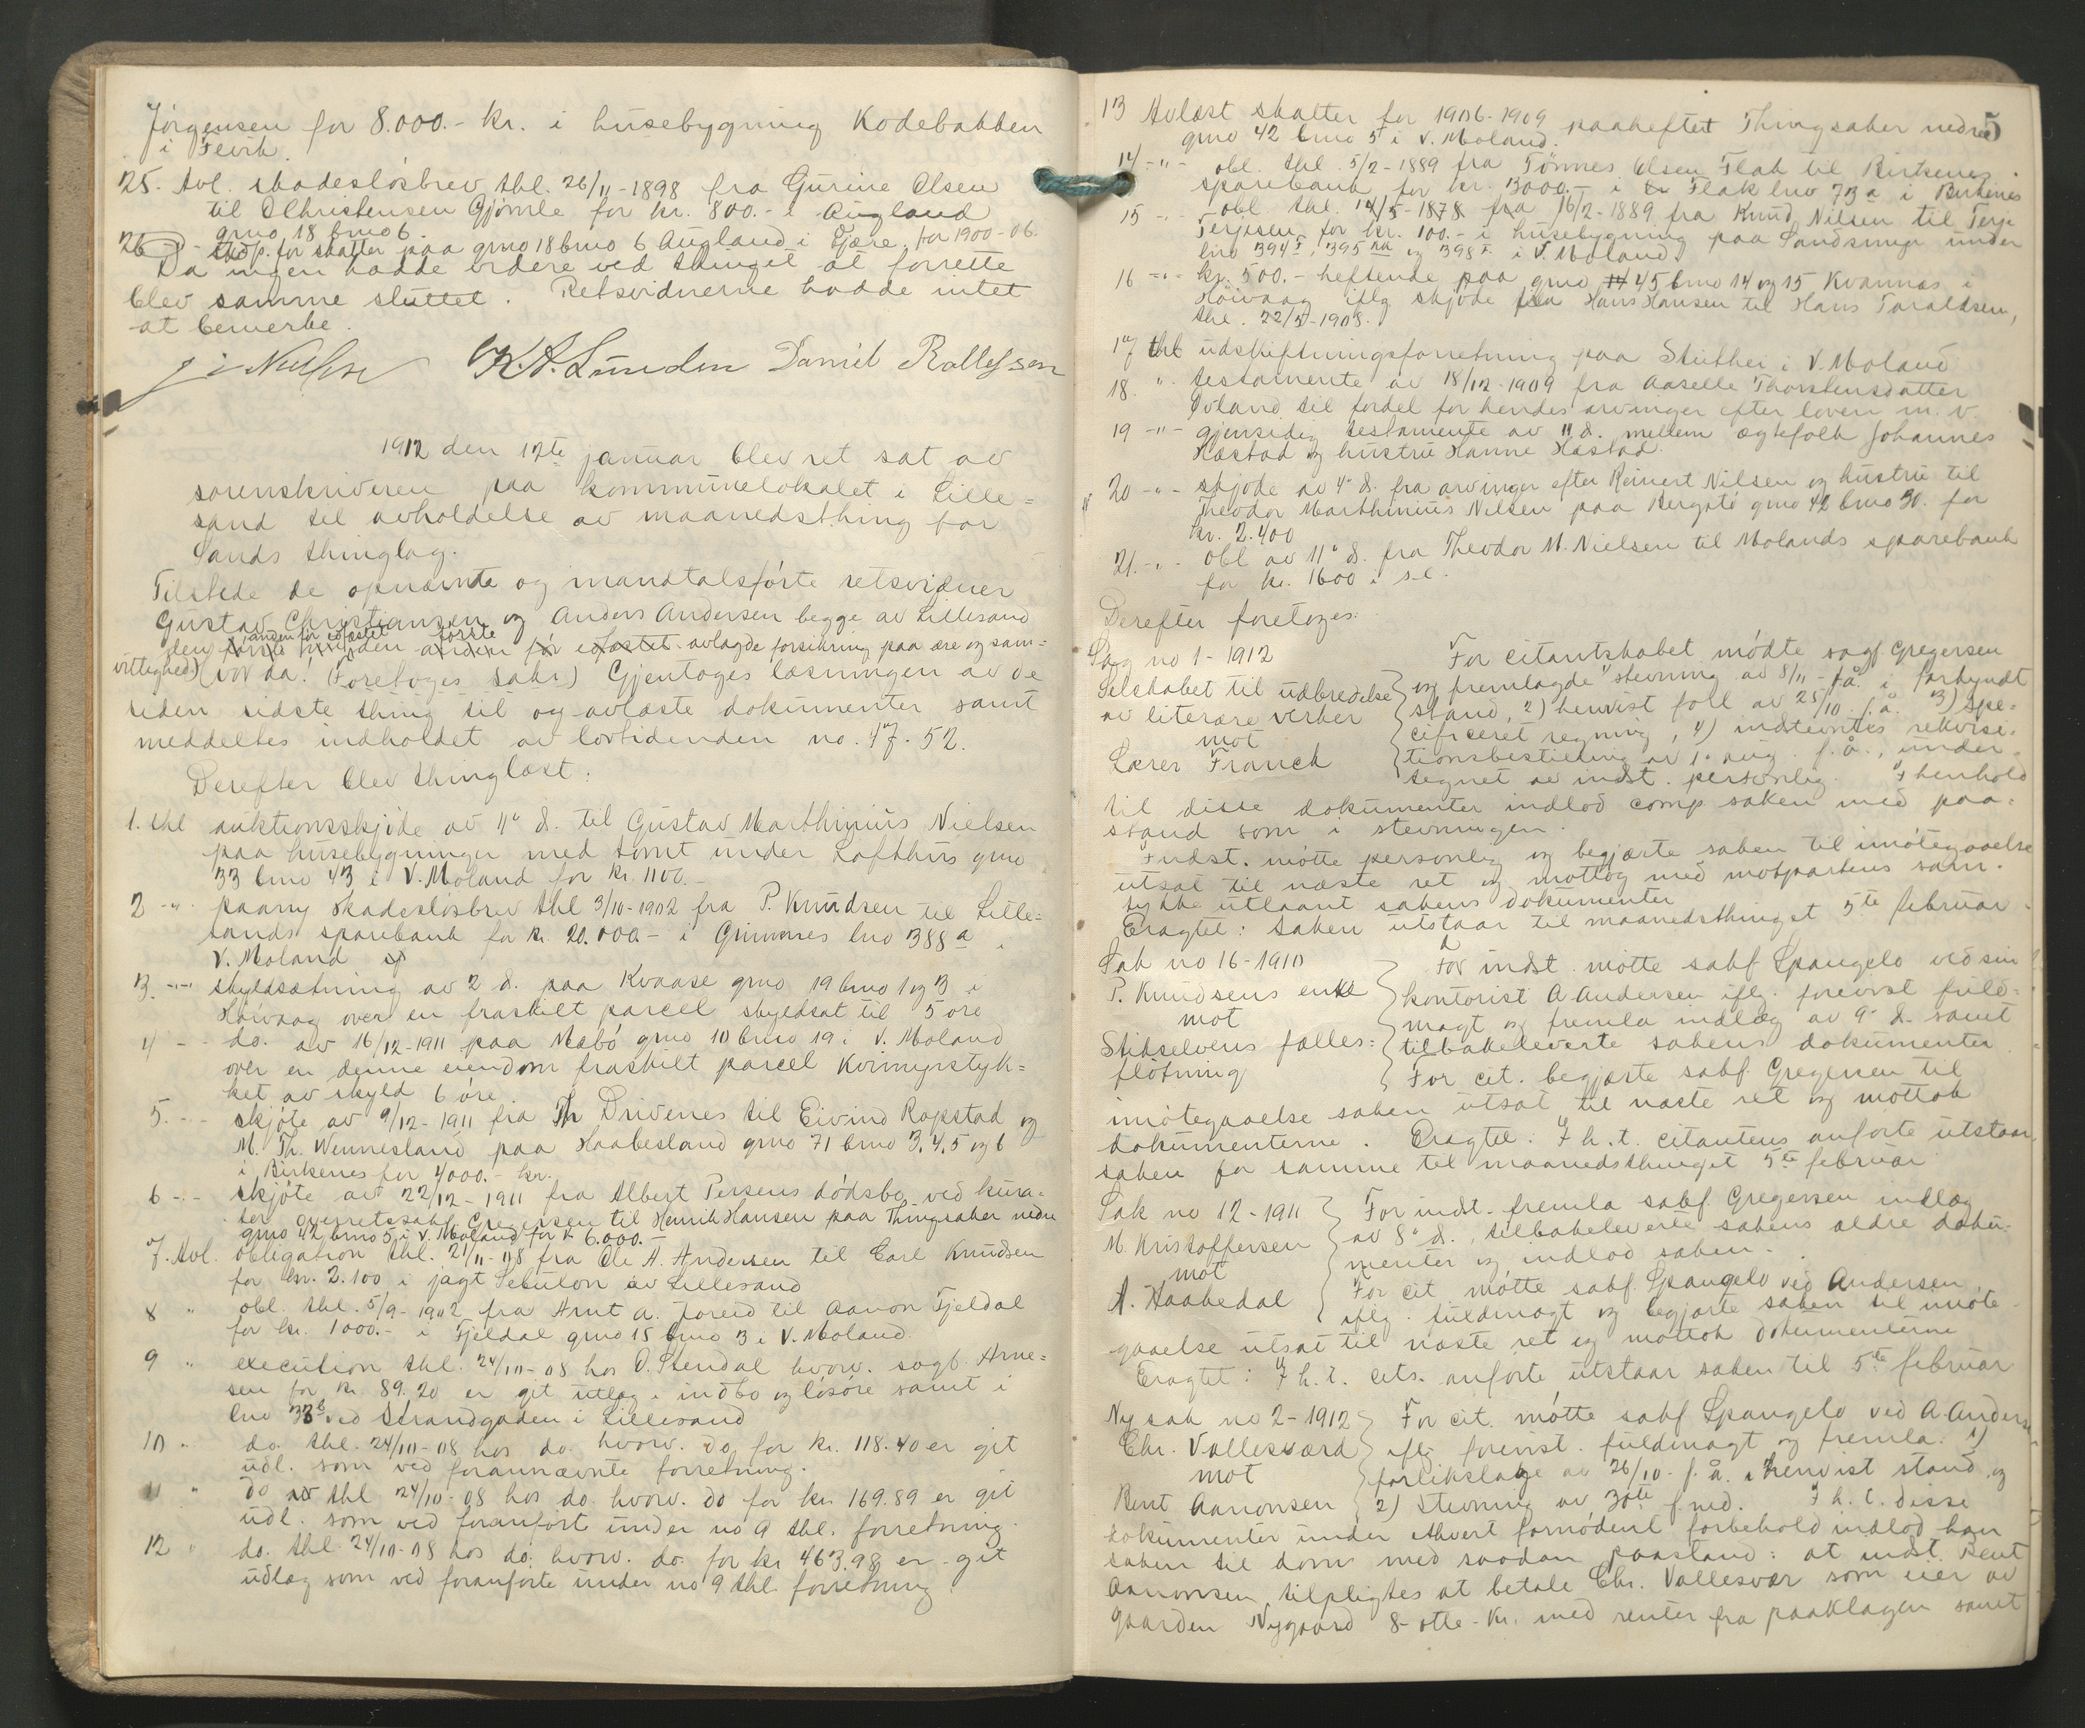 Jørgensen for 8.000.- kr. i husebygning Kodebakken
i Fevik.
25. Avl. skadesløsbrev thl. 26/11-1898 fra Gurine Olsen
til Christensen Gjømle for kr. 800.- i Augland
gno 18 bno 6.
26 for skatter paa gno 18 bno 6 Augland i Fjære for 1900-06.
Da ingen hadde videre ved thinget at forrette
blev samme sluttet. Retsvidnerne hadde intet
at bemerke.
K. A. Lunden Daniel Rollefsen
1912 den 12te januar blev ret sat av
sorenskriveren paa kommunelokalet i Lille=
sand til avholdelse av maanedsthing for
Sands thinglag.
Tilstede de opnævnte og mandtalsførte retsvidner
Gustav Christiansen og Anders Andersen begge av Lillesand
den anden før edfæstet første avlagde forsikring paa ære og sam=
vittighed (Foretoges saker) Gjentoges læsningen av de
siden sidste thing til og avlæste dokumenter samt
meddeltes indholdet av lovtidenden no. 47-52.
Derefter blev thinglæst:
1. thl auktionsskjøde av 4de d. til Gustav Marthinius Nielsen
paa husebygninger med tomt under Lofthus gno
33 bno 43 i V. Moland for kr. 1100.-
2 -"- paany skadesløsbrev thl 3/10-1902 fra P. Knudsen til Lille=
sands sparebank for kr. 20.000.- i Grimnes lno 388a i
V. Moland
3. -"- skyldsætning av 2 d. paa Kvaase gno 19 bno 1 og 3 i
Høivaag over en fraskilt parcel skyldsat til 5 øre
4 - - do. av 16/12-1911 paa Mæbø gno 10 bno 19 i V. Moland
over en denne eiendom fraskilt parcel Kvimyrstyk=
ket av skyld 6 øre.
5. - - skjøte av 9/12-1911 fra Th Drivenes til Eivind Rapstad og
M. Th. Wennesland paa Haabesland gno 71 bno 3,4,5 og 6
i Birkenes for 4000.- kr.
6 - - skjøte av 22/12-1911 fra Albert Persens dødsbo ved kura=
tor overretssakf. Gregersen til Henrik Hansen paa Thingsaker nedre
gno 42 bno 5 i V. Moland for kr 6.000.-
7. Avl. obligation thl. 21/11-08 fra Ole A. Andersen til Carl Knudsen
for kr. 2.100 i jagt Sebulon av Lillesand
8 " obl. thl. 5/9-1902 fra Arnt A. Joreid til Aanon Tjeldal
for kr. 1000.- i Fjeldal gno 15 bno 3 i V. Moland.
9 " execution thl. 24/10-08 hos O. Stendal hvorv. sagf. Arne=
sen for kr. 89.20 er git utlæg i indbo og løsøre samt i
lno 33b ved Strandgaden i Lillesand
10 " do. thl. 24/10-08 hos do. hvorv. do for kr. 118.40 er git
udl. som ved forannævnte forretning.
11 " do thl 24/10-08 hos do. hvorv. do for kr. 169.89 er git
udl. som ved foranførte under no 9 thl. forretning.
12 " do. thl. 24/10-08 hos do. hvorv. do. for kr 463.98 er git
udlæg som ved foranførte under no 9 thl. forretning.
5
13 Avlæst skatter for 1906-1909 paaheftet Thingsaker nedre
gno 42 bno 5 i V. Moland.
14 -"- obl. thl. 5/2-1889 fra Tønnes Olsen Flak til Birkenes
sparebank for kr. 3000.- i Flak lno 73a i Birkenes
15 - obl. thl. 14/5-1878 fra 16/2-1889 fra Knud Nilsen til Terje
Terjesen for kr. 100.- i husebygning paa Sandsmyr under
lno 394, 395 og 398 i V. Moland.
16 -"- kr. 500.- heftende paa gno 45 bno 14 og 15 Kvannæs i
Høivaag iflg skjøde fra Hans Hansen til Hans Taraldsen,
thl. 22/5-1908.
17 thl udskiftningsforretning paa Stuthei i V. Moland
18. " testamente av 18/12-1909 fra Aaselle Thorstensdatter
Øvland til fordel for hendes arvinger efter loven m. v.
19 -"- gjensidig testamente av 11 d. mellem ægtefolk Johannes
Hæstad og hustru Hanne Hæstad.
20 -"- skjøde av 4de d. fra arvinger efter Reinert Nilsen og hustru til
Theodor Marthinius Nilsen paa Bergstø gno 42 bno 30. for
kr. 2.400
21. -"- obl av 11te d. fra Theodor M. Nielsen til Molands sparebank
for kr. 1600 i s.e.
Derefter foretoges:
Sag no 1-1912
Selskabet til udbredelse
av literære verker
mot
Lærer Franck
For citantskabet mødte sagf. Gregersen
og fremlagde 1) stevning av 8/11 f.å. i forkyndt
stand, 2) henvist forl av 25/10 f.å. 3) Spe=
cificeret regning, 4) indstevntes rekvisi=
tionsbestilling av 1. aug. f.å., under=
tegnet av indst. personlig. I henhold
til disse dokumenter indlod comp saken med paa=
stand som i stevningen.
Indst. møtte personlig og begjærte saken til imøtegaaelse
utsat til næste ret og mottog med motpartens sam=
tykke utlaant sakens dokumenter
Eragtet: Saken utstaar til maanedsthinget 5te februar.
Sak no 16-1910
P. Knudsens enke
mot
Stikselvens fælles=
fløtning
For indst. møtte sakf. Spangelo ved sin
kontorist A Andersen iflg. forevist fuld=
magt og fremla indlæg av 9de d. samt
tilbakeleverte sakens dokumenter.
For cit. begjærte sakf. Gregersen til
imøtegaaelse saken utsat til næste ret og mottok
dokumenterne. Eragtet: I h. t. citantens anførte utstaar
saken for samme til maanedsthinget 5te februar
Sak no 12-1911
M. Kristoffersen
mot
A. Haabedal
For indst. fremla sakf. Gregersen indlæg
av 8de d., tilbakeleverte sakens ældre doku=
menter og indlod saken.
For cit møtte sakf. Spangelo ved Andersen
iflg. fuldmagt og begjærte saken til imøte=
gaaelse utsat til næste ret og mottok dokumenterne
Eragtet: I h. t. cits. anførte utstaar saken til 5te februar
Ny sak no 2-1912
Chr. Vallesværd
mot
Bent Aanonsen
For cit. møtte sakf Spangelo ved A. Andersen
iflg. forevist fuldmagt og fremla: 1)
forliksklage av 26/10 f.å. i henvist stand og
2) Stevning av 30te f. md. I h. t. disse
dokumenter under ethvert fornødent forbehold indlod han
saken til dom med saadan paastand: at indst. Bent
Aanonsen tilpligtes at betale Chr. Vallesvær som eier av
gaarden Nygaard 8-otte-kr. med renter fra paaklagen samt